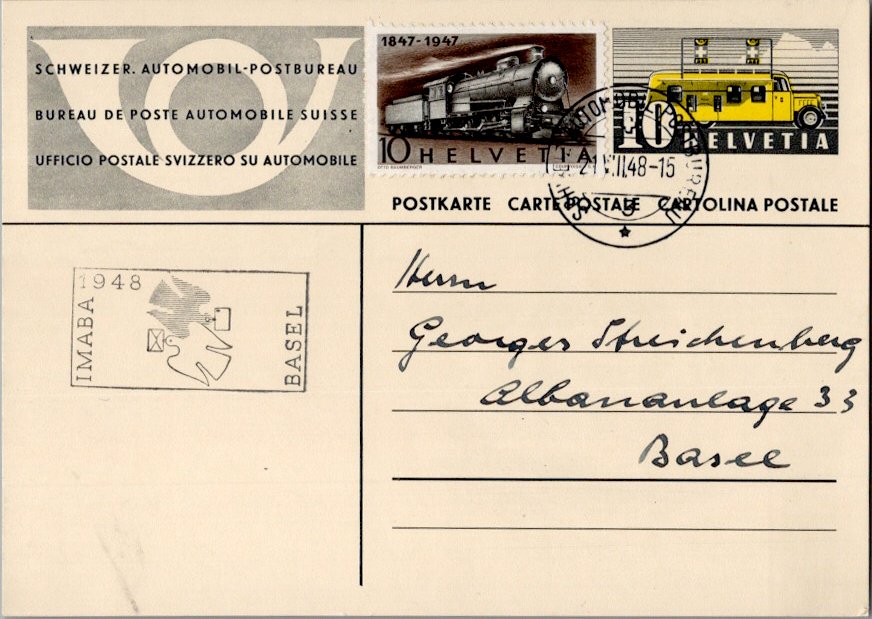 SCHWEIZER. AUTOMOBIL-POSTBUREAU
BUREAU DE POSTE AUTOMOBILE SUISSE
UFFICIO POSTALE SVIZZERO SU AUTOMOBILE
1847-1947
10 HELVETIA
OTTO BAUMBERGER
10 HELVETIA
AUTOMOBIL POSTBUREAU
48-15
POSTKARTE CARTE POSTALE CARTOLINA POSTALE
IMABA 1948 BASEL
Herrn
Georges Streichenberg
Albananlage 33
Basel